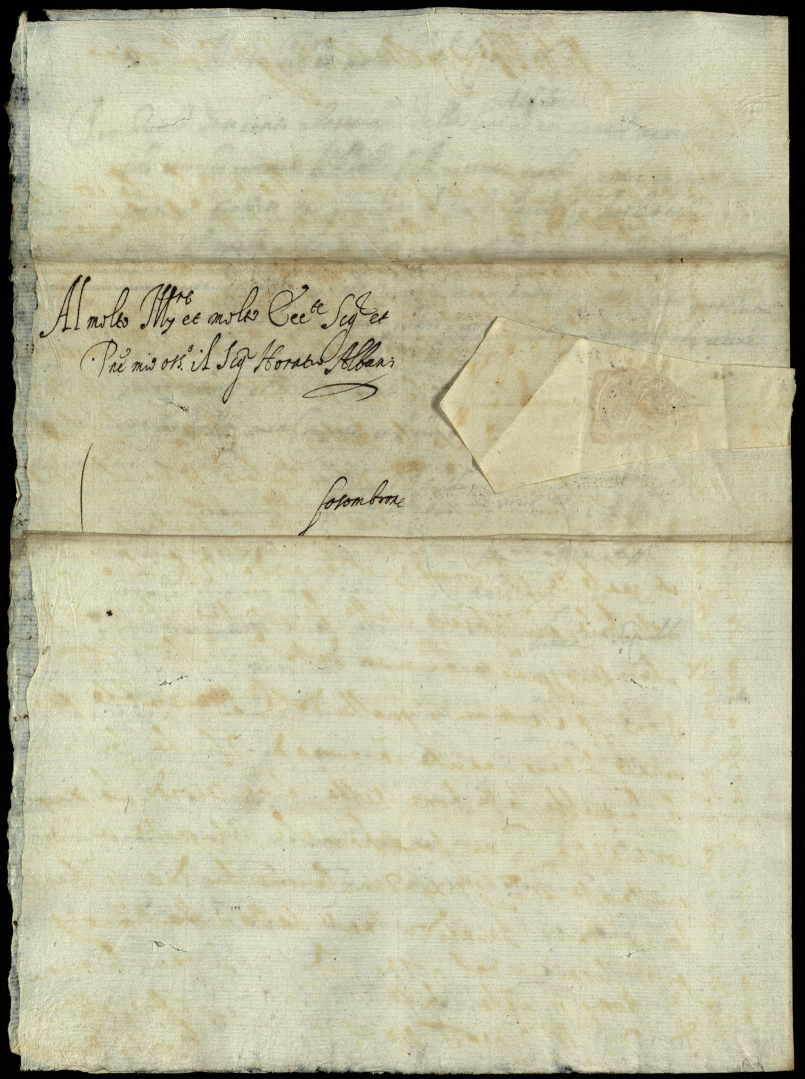 Al molto Ill.re et molto Ecc.te Sig.r et
P.ne mio oss.o il Sig.r Horatio Albani
Colombrone